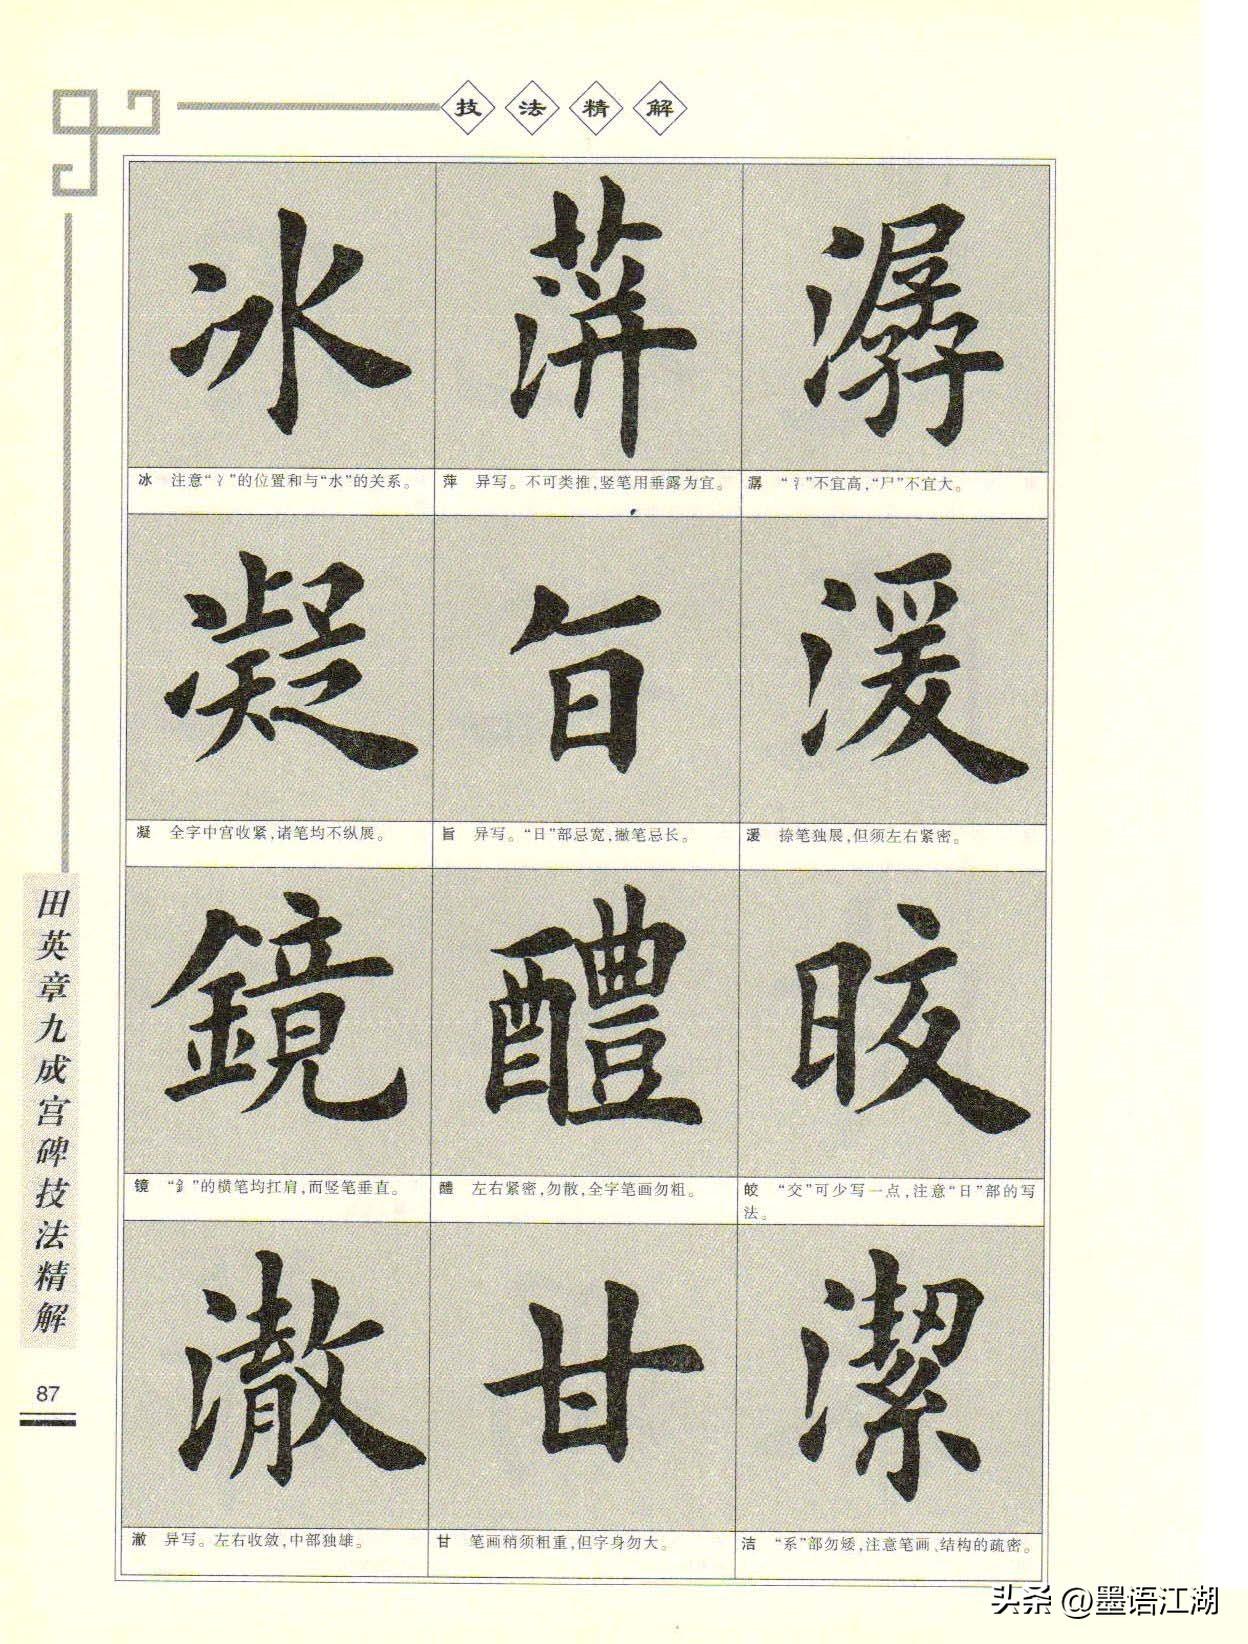 技法精解
冰 萍 潺
冰 注意“冫”的位置和与“水”的关系。
萍 异写。不可类推,竖笔用垂露为宜。
潺 “氵”不宜高,“尸”不宜大。
凝 旨 湲
凝 全字中宫收紧,诸笔均不纵展。
旨 异写。“日”部忌宽,撇笔忌长。
湲 捺笔独展,但须左右紧密。
鏡 醴 晈
镜 “釒”的横笔均扛肩,而竖笔垂直。
醴 左右紧密,勿散,全字笔画勿粗。
皎 “交”可少写一点,注意“日”部的写
法。
澈 甘 潔
澈 异写。左右收敛,中部独雄。
甘 笔画稍须粗重,但字身勿大。
洁 “系”部勿矮,注意笔画、结构的疏密。
田英章九成宫碑技法精解
87
头条 @墨语江湖